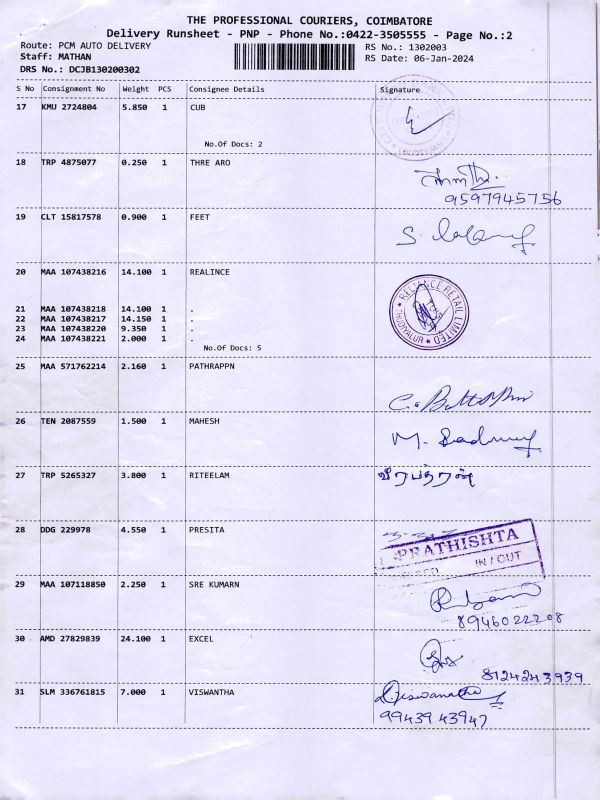 THE PROFESSIONAL COURIERS, COIMBATORE
Delivery Runsheet - PNP - Phone No.:0422-3505555 - Page No.:2
Route: PCM AUTO DELIVERY RS No.: 1302003
Staff: MATHAN RS Date: 06-Jan-2024
DRS No.: DCJB130200302
S No Consignment No Weight PCS Consignee Details Signature
17 KMU 2724804 5.850 1 CUB
No.Of Docs: 2
18 TRP 4875077 0.250 1 THRE ARO
9597945756
19 CLT 15817578 0.900 1 FEET
S.
20 MAA 107438216 14.100 1 REALINCE
RELIANCE RETAIL LIMITED
THUDIYALUR
21 MAA 107438218 14.100 1 .
22 MAA 107438217 14.150 1 .
23 MAA 107438220 9.350 1 .
24 MAA 107438221 2.000 1 .
No.Of Docs: 5
25 MAA 571762214 2.160 1 PATHRAPPN
26 TEN 2087559 1.500 1 MAHESH
M.
27 TRP 5265327 3.800 1 RITEELAM வீரபத்ரன்
28 DDG 229978 4.550 1 PRESITA
PRATHISHTA
IN / OUT
29 MAA 107118850 2.250 1 SRE KUMARN
8946022208
30 AMD 27829839 24.100 1 EXCEL
8124243939
31 SLM 336761815 7.000 1 VISWANTHA Viswanatha
9943943947